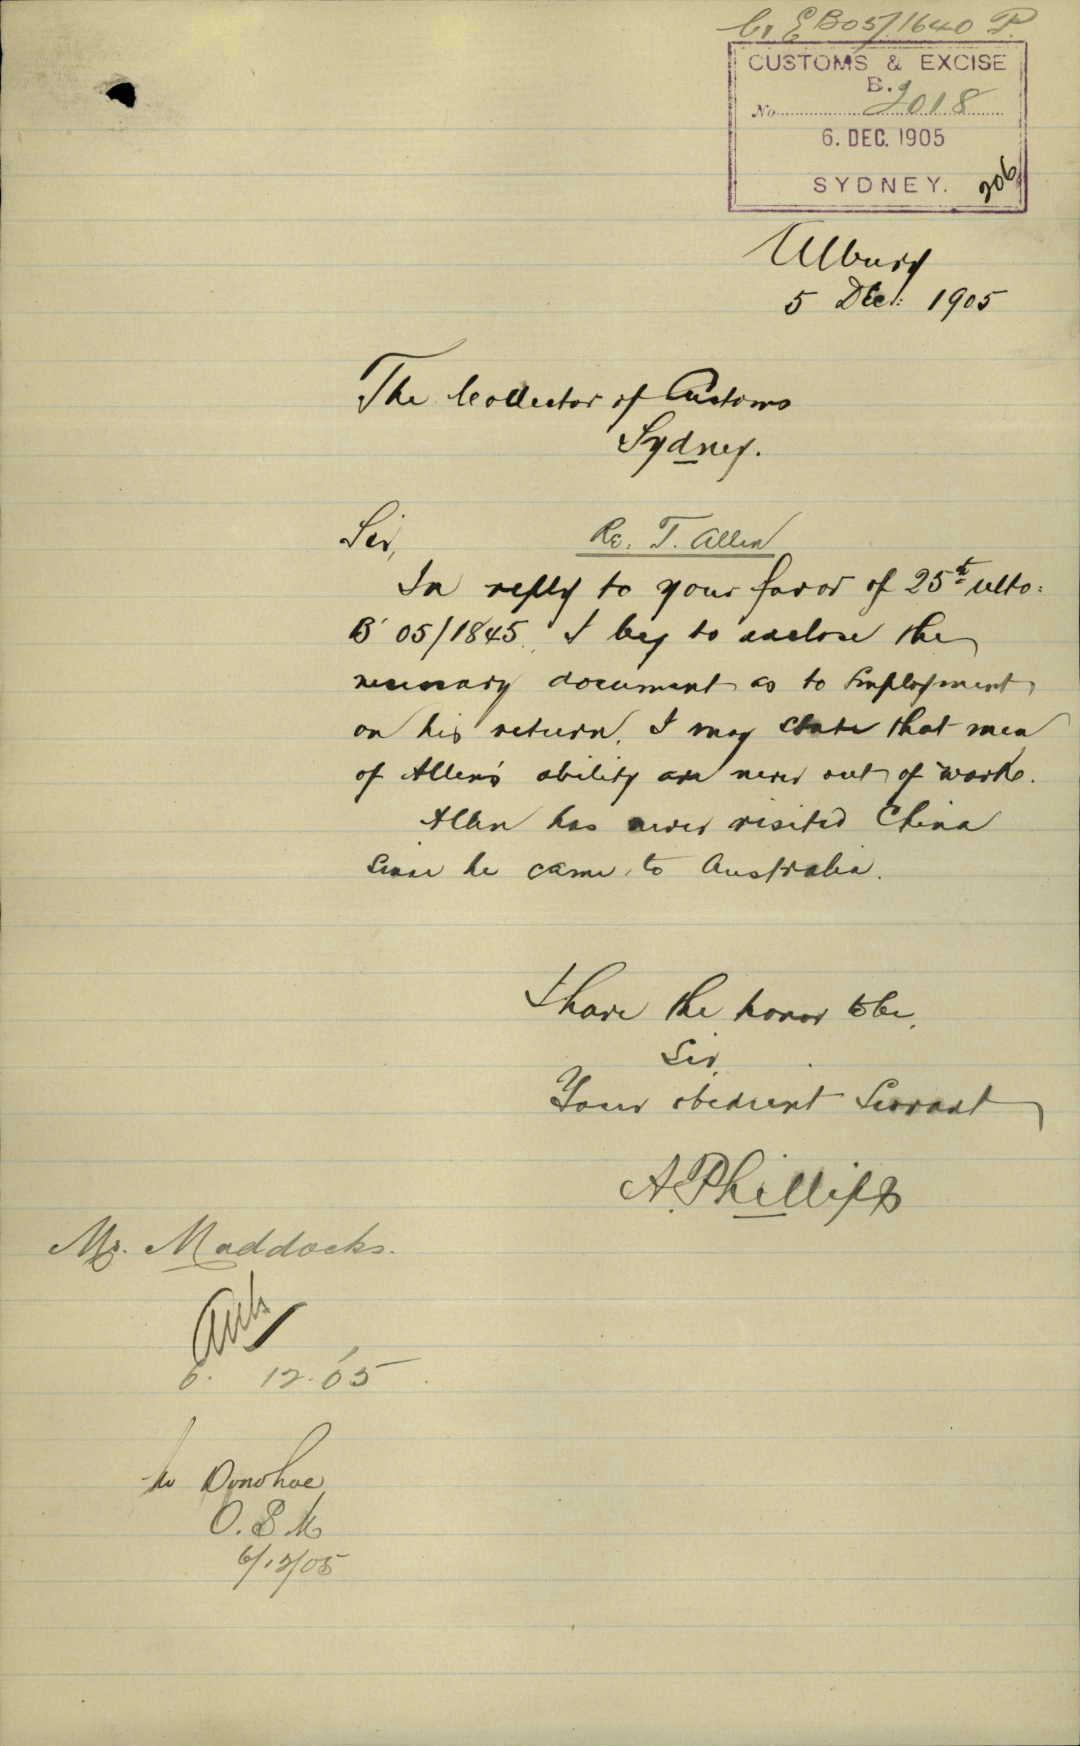 C. E B05/1640 P.
CUSTOMS & EXCISE
B.
No. 2018
6. DEC. 1905
SYDNEY.
206
Albury
5 Dec: 1905
The Collector of Customs
Sydney.
Sir,
Re. T. Allen
In reply to your favor of 25th ulto:
B 05/1845. I beg to enclose the
necessary document as to Employment
on his return. I may state that men
of Allen's ability are never out of work.
Allen has never visited China
since he came to Australia.
I have the honor to be,
Sir,
Your obedient Servant
A. Phillips
Mr. Maddocks.
6. 12. 05
Mr Donohoe
6/12/05